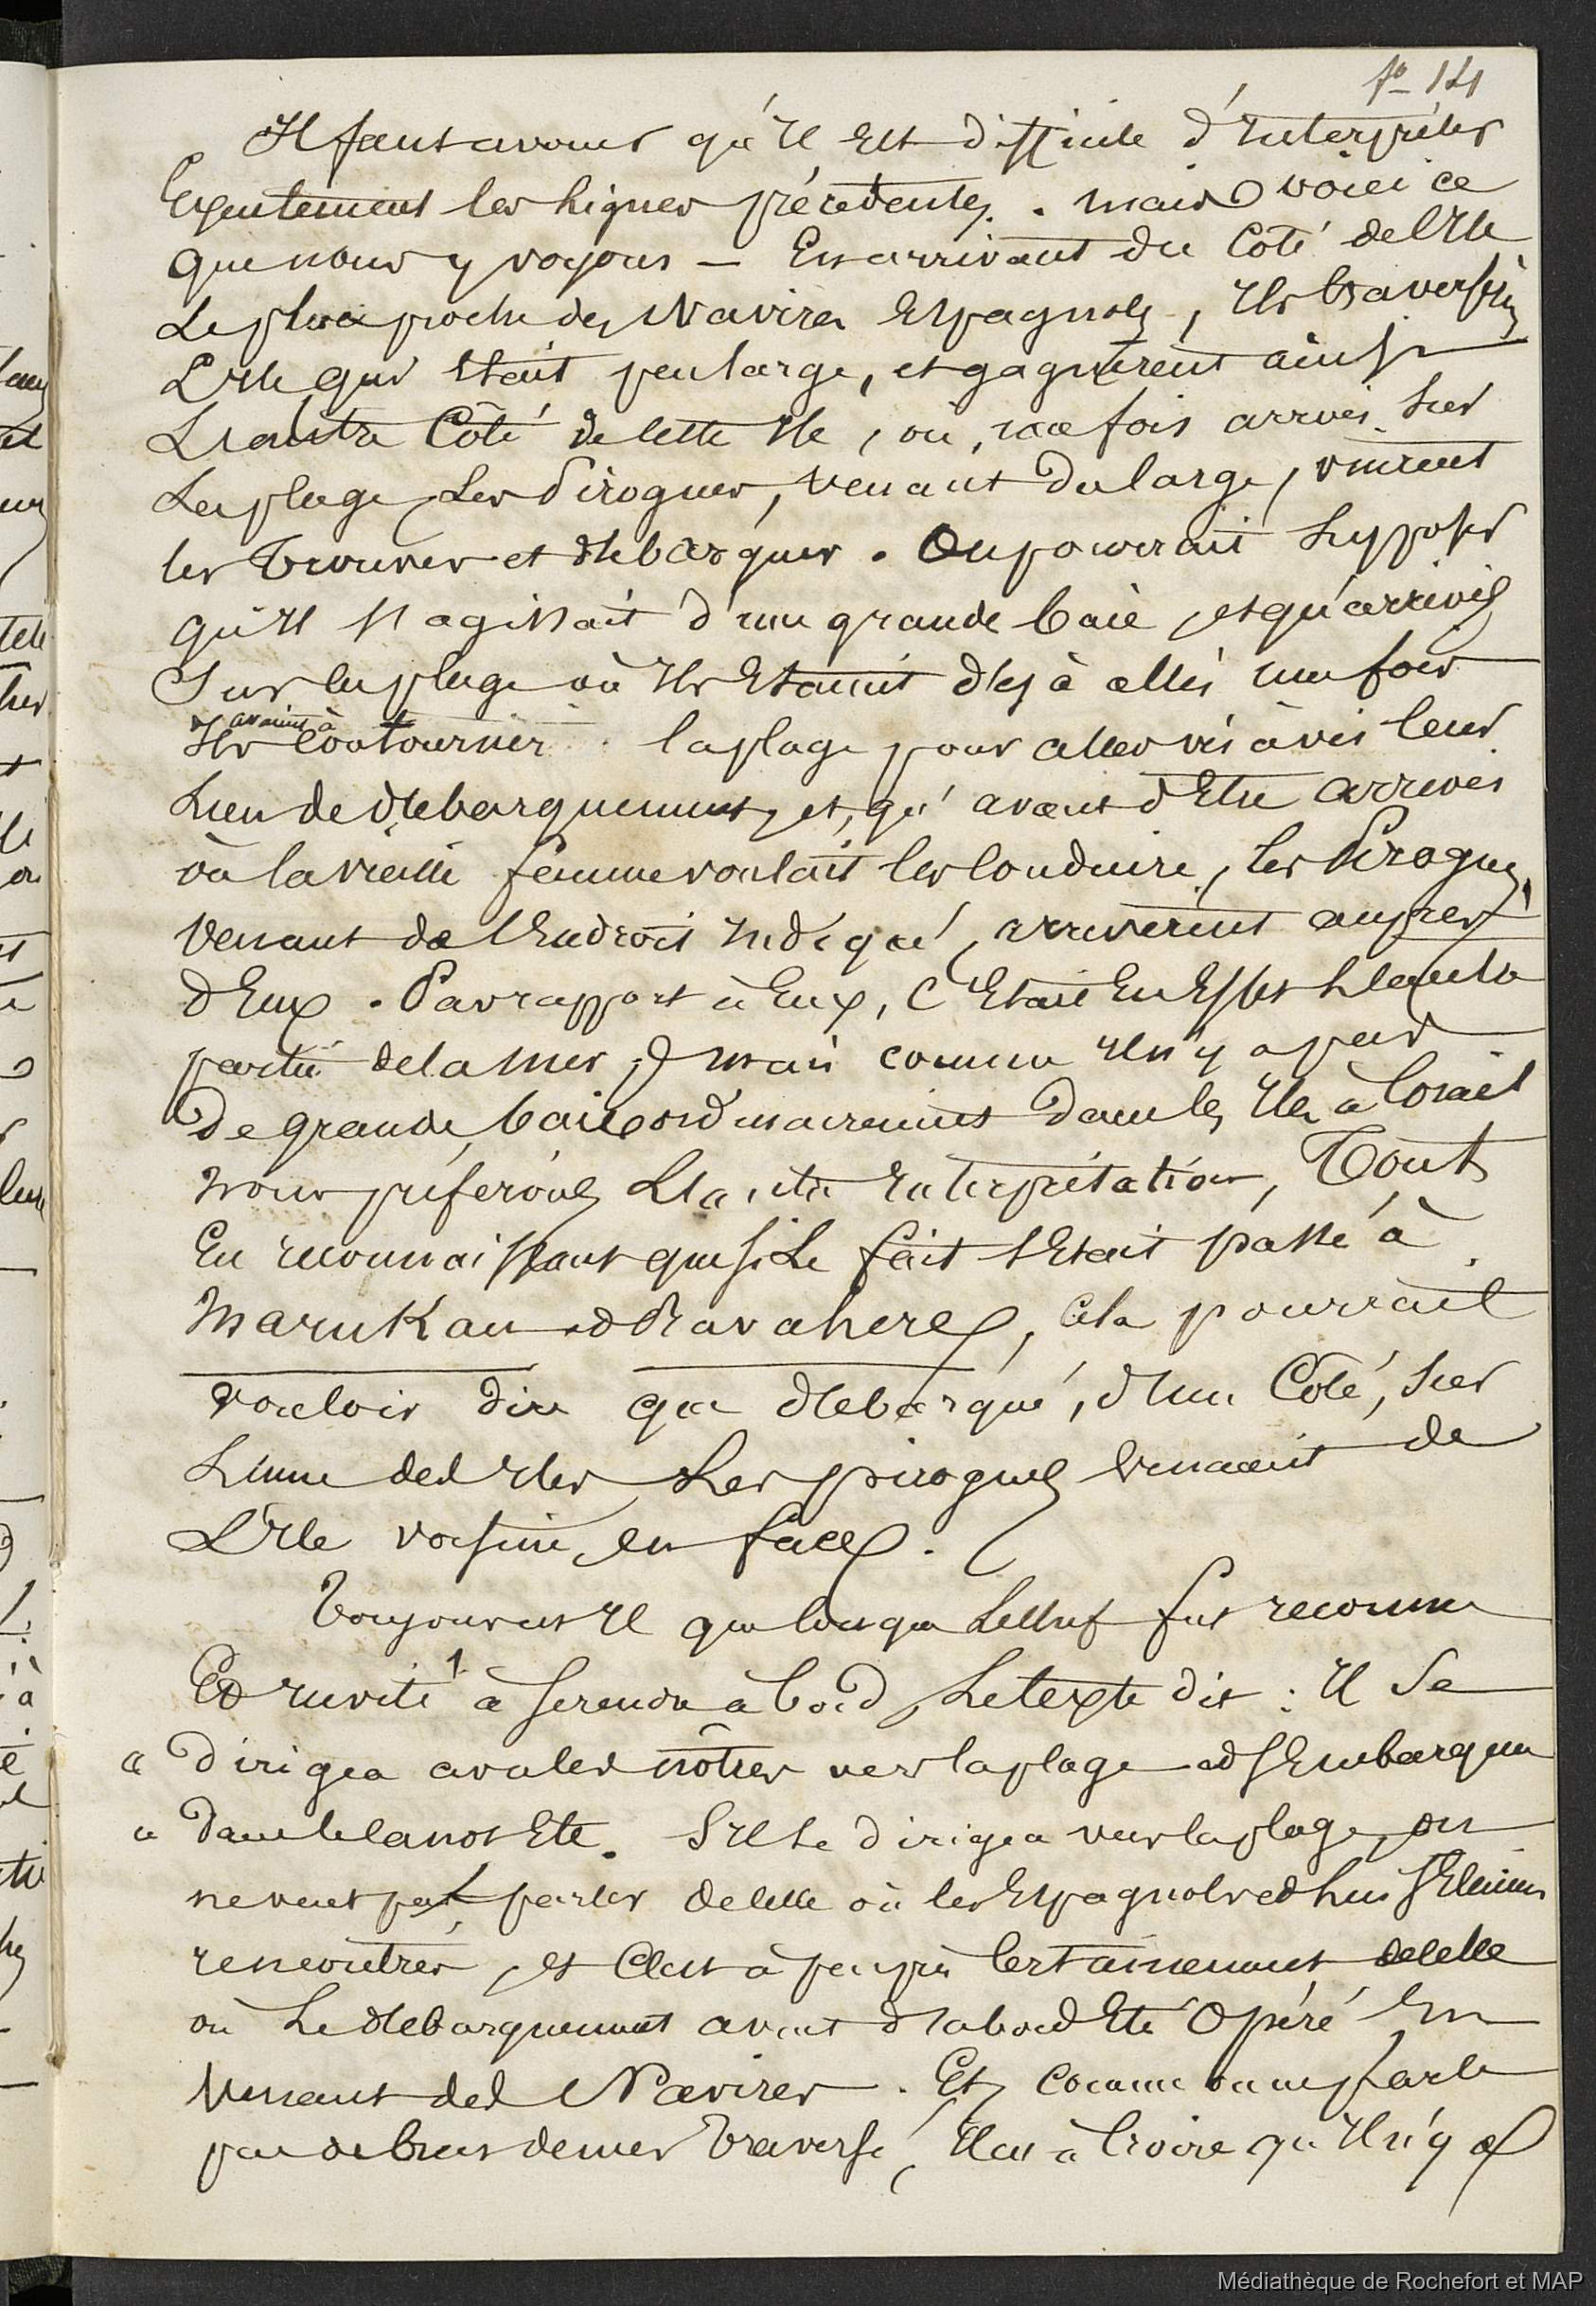 fo 141
Il faut avouer qu'Il Est difficile d'Interpréter
Exactement les lignes précédentes. mais voici ce
que nous y voyons — En arrivant du Côté de l'Ile
Le plus proche des Navires Espagnols, Ils traversèrent
L'Ile qui Etait peu large, et gagnèrent ainsi
L'autre Côté de cette Ile, où, une fois arrivés sur
La plage, Les Pirogues, venant du large, vinrent
les trouver et débarquer. On pourrait supposer
qu'Il s'agissait d'une grande baie, et qu'arrivés
Sur la plage où Ils Etaient déjà allés une fois
Ils avaient à Contourner la plage pour aller vis à vis leur
Lieu de débarquement, et, qu'avant d'Etre arrivés
où la vieille femme voulait les Conduire, les Pirogues,
venant de l'Endroit Indiqué, arrivèrent auprès
d'Eux. Par rapport à Eux, C'Etait En Effet L'autre
partie de la Mer; mais comme Il n'y a pas
De grandes baies ordinairement dans les Iles à Corail
nous préférons L'autre Interprétation, Tout
En reconnaissant que si Le fait s'Etait passé à
Marukau et Ravahere, Cela pourrait
vouloir dire que débarqué, d'un Côté, sur
L'une des Iles Les pirogues venaient de
L'Ile voisine, en face.
Toujours est Il que lorsque Le Chef fut reconnu
Et invité à se rendre à bord, Le texte dit : Il Se
" Dirigea avec les nôtres vers la plage et s'Embarqua
" Dans le canot Etc. S'Il se dirigea vers la plage, on
ne veut pas parler de celle où les Espagnols et lui s'Etaient
rencontrés, et C'est à peu près Certainement de celle
où Le débarquement avait d'abord Eté Opéré En
Venant des Navires. Et, comme on ne parle
pas de bras de mer traversé, Il est à Croire qu'Il n'y a
Médiathèque de Rochefort et MAP